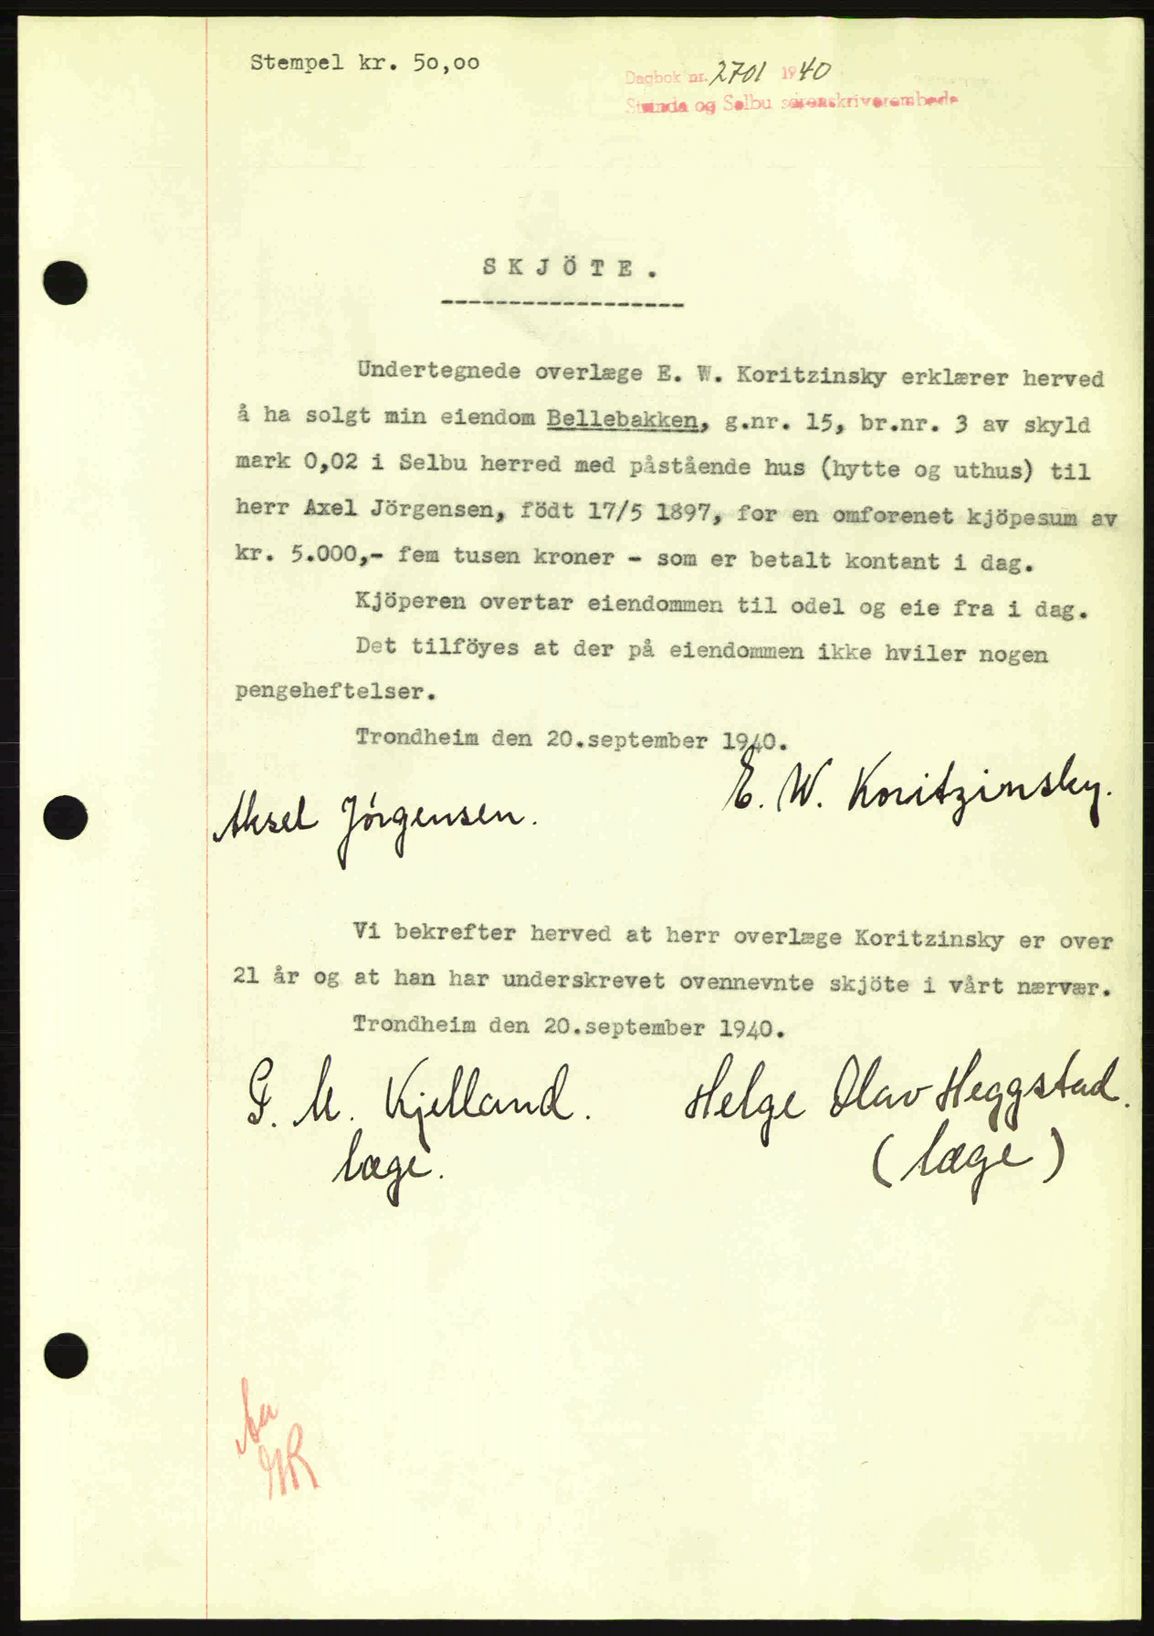 Stempel kr. 50,00
Dagbok nr. 2701 1940
Strinda og Selbu sorenskriverembede
SKJÖTE.
------------------
Undertegnede overlæge E. W. Koritzinsky erklærer herved
å ha solgt min eiendom Bellebakken, g.nr. 15, br.nr. 3 av skyld
mark 0,02 i Selbu herred med påstående hus (hytte og uthus) til
herr Axel Jörgensen, födt 17/5 1897, for en omforenet kjöpesum av
kr. 5.000,- fem tusen kroner - som er betalt kontant i dag.
Kjöperen overtar eiendommen til odel og eie fra i dag.
Det tilföyes at der på eiendommen ikke hviler nogen
pengeheftelser.
Trondheim den 20.september 1940.
E. W. Koritzinsky.
Aksel Jörgensen.
Vi bekrefter herved at herr overlæge Koritzinsky er over
21 år og at han har underskrevet ovennevnte skjöte i vårt nærvær.
Trondheim den 20.september 1940.
G. M. Kjelland. Helge Olav Heggstad.
læge. (læge)